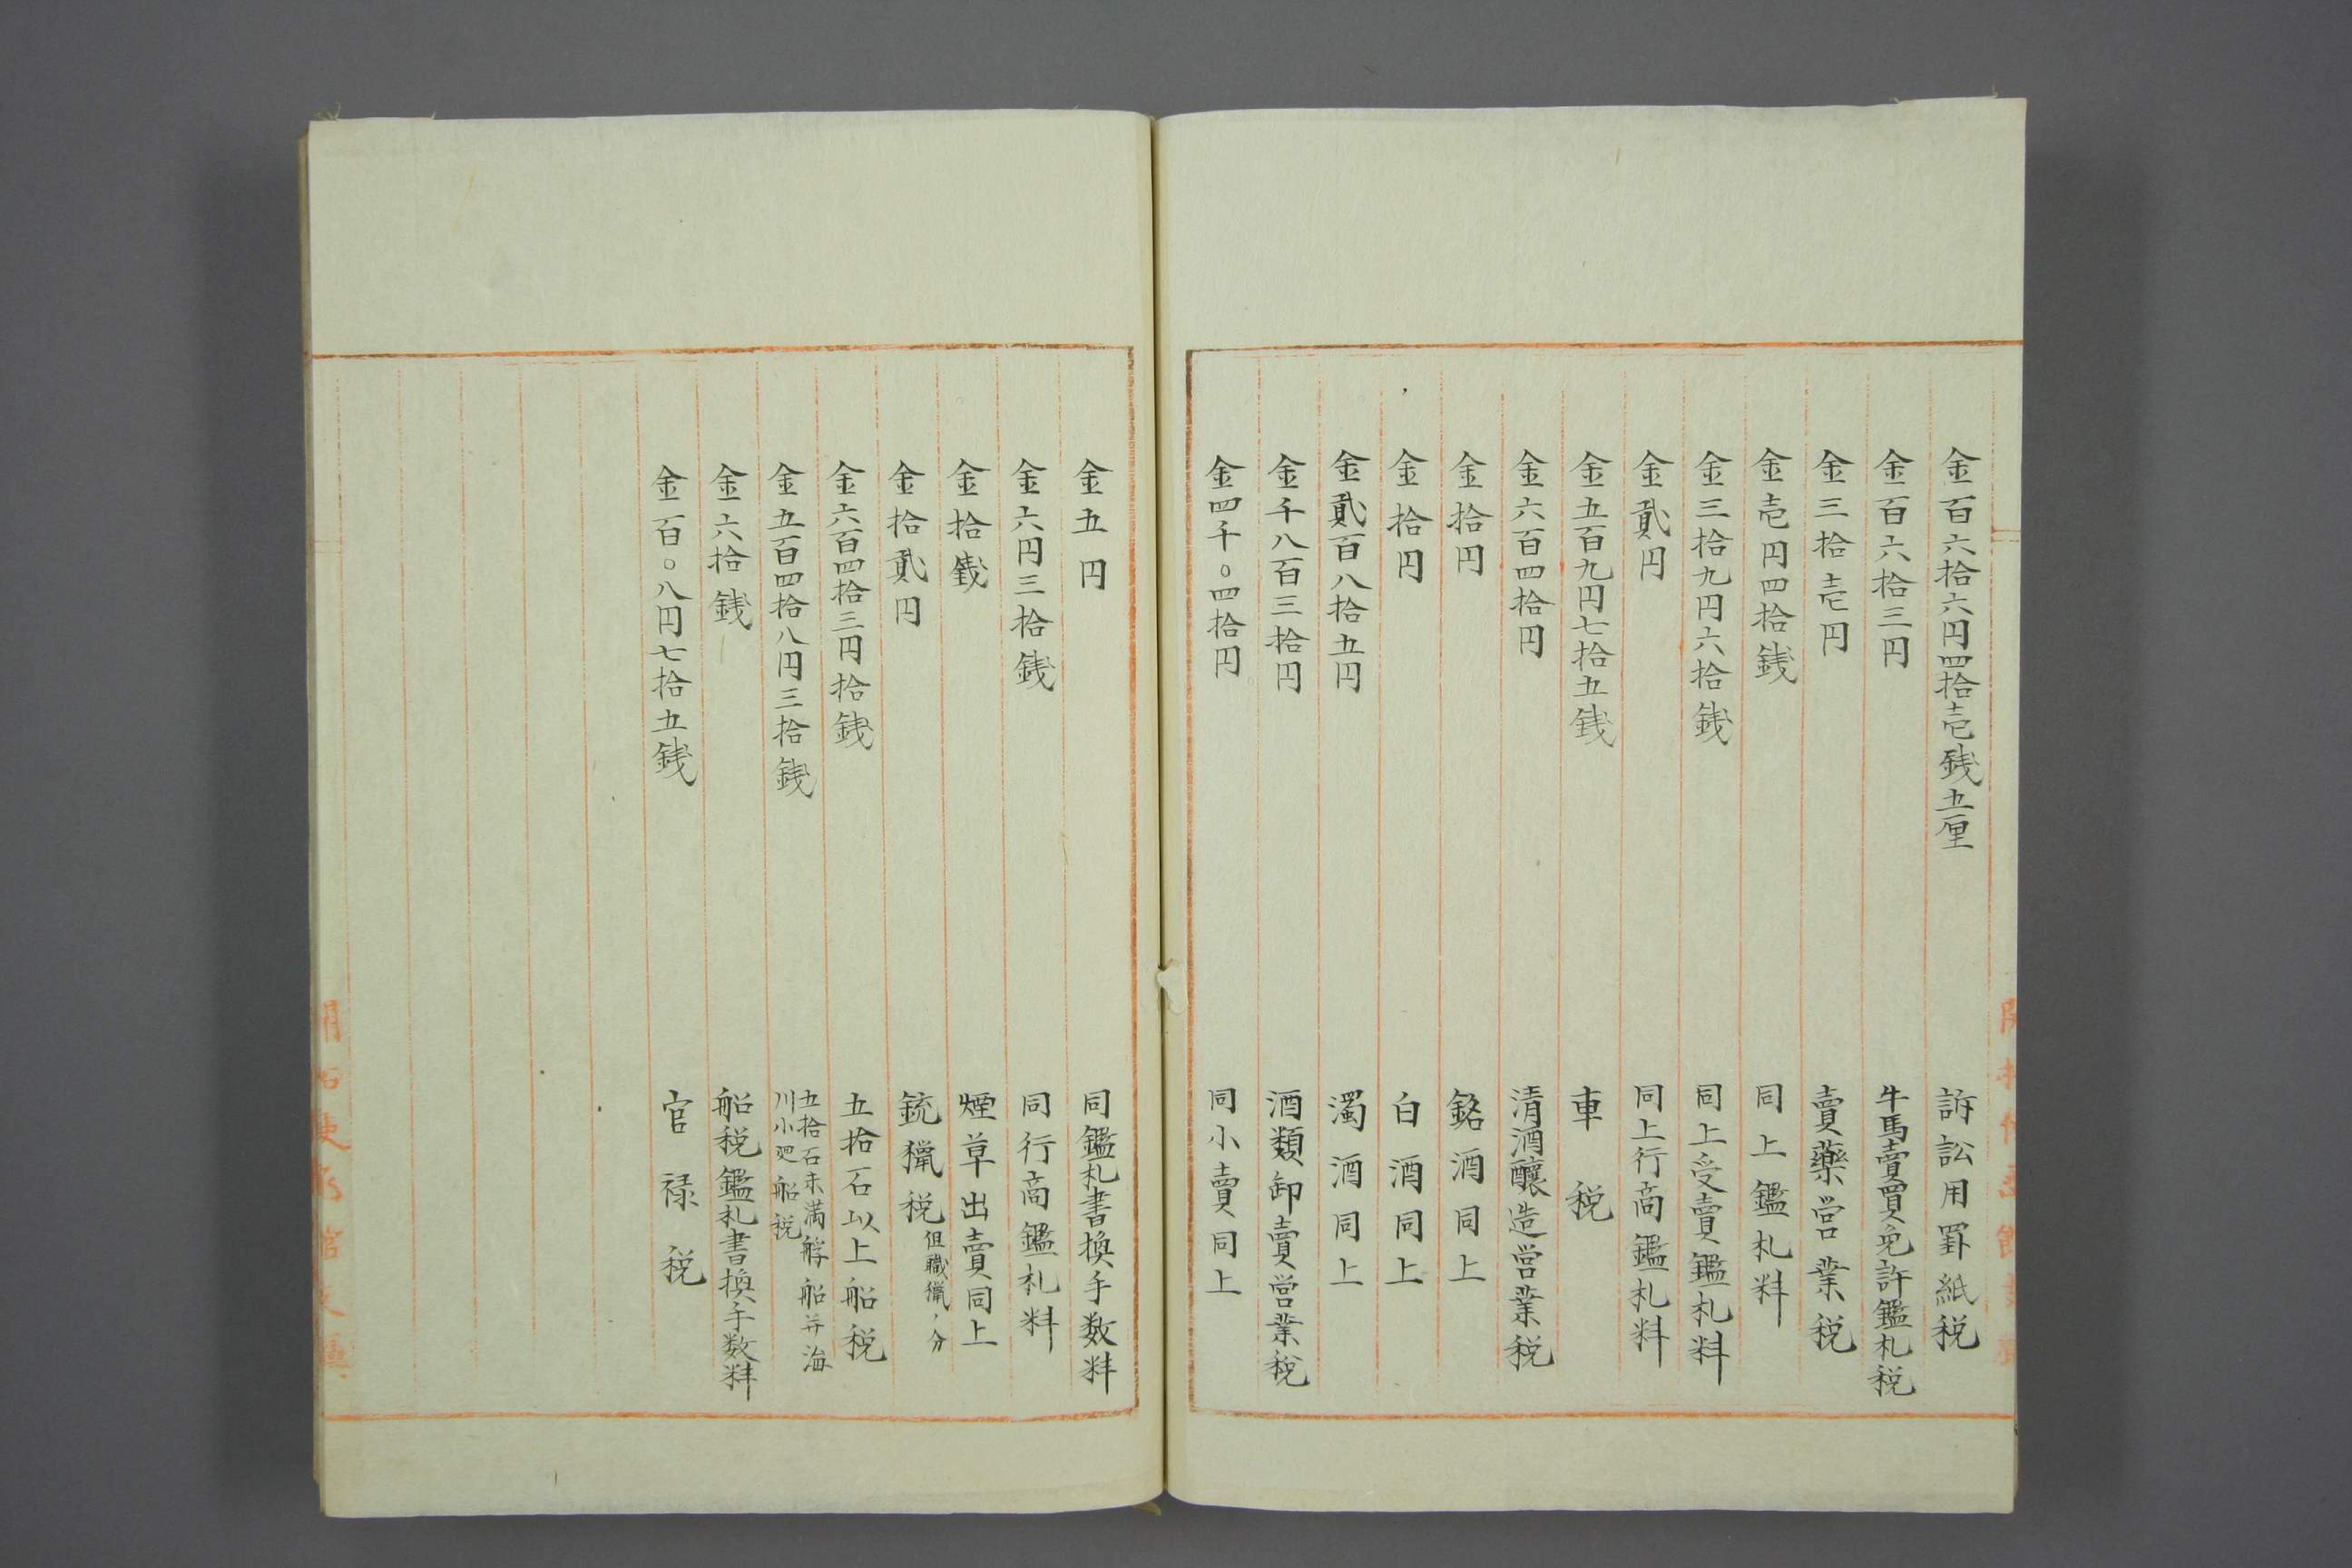 金百六拾六円四拾壱銭五厘 訴訟用罫紙税
金百六拾三円 牛馬賣買免許鑑札税
金三拾壱円 賣藥営業税
金壱円四拾銭 同上鑑札料
金三拾九円六拾銭 同上受賣鑑札料
金貮円 同上行商鑑札料
金五百九円七拾五銭 車税
金六百四拾円 清酒醸造営業税
金拾円 銘酒同上
金拾円 白酒同上
金貮百八拾五円 濁酒同上
金千八百三拾円 酒類卸賣営業税
金四千〇四拾円 同小賣同上
金五円 同鑑札書換手数料
金六円三拾銭 同行商鑑札料
金拾銭 煙草出賣同上
金拾貮円 銃猟税 但職猟ノ分
金六百四拾三円拾銭 五拾石以上船税
金五百四拾八円三拾銭 五拾石未満艀船并海
川小廻船税
金六拾銭 船税鑑札書換手数料
金百〇八円七拾五銭 官禄税